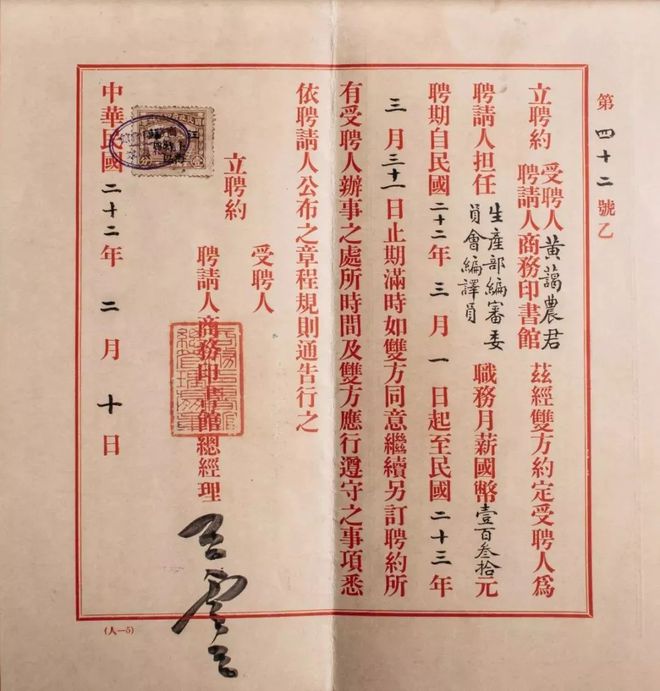 第四十二號乙
立聘約
受聘人黃藹農君
聘請人商務印書館
茲經雙方約定受聘人為
聘請人担任
生產部編審委
員會編譯員
職務月薪國幣壹百叁拾元
聘期自民國二十二年三月一日起至民國二十三年
三月三十一日止期滿時如雙方同意繼續另訂聘約所
有受聘人辦事之處所時間及雙方應行遵守之事項悉
依聘請人公布之章程規則通告行之
立聘約
受聘人
聘請人商務印書館總經理
王雲五
中華民國二十二年二月十日
(人—5)